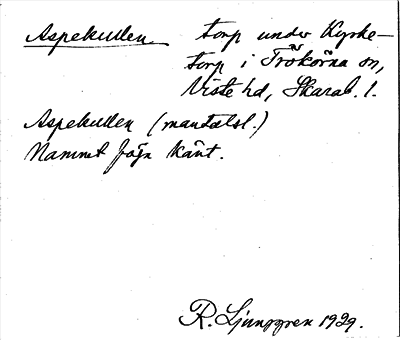 Aspekullen torp under Kyrke-
torp i Trökörna sn,
Viste hd, Skarab. l.
Aspekullen (mantalsl.)
Namnet föga känt.
R. Ljunggren 1929.